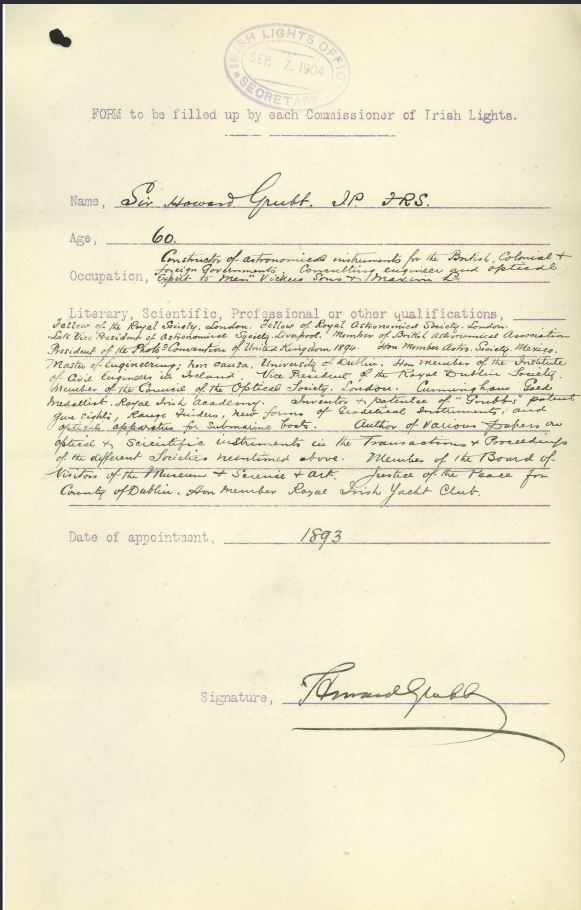 IRISH LIGHTS OFFICE
SEP 7. 1904
SECRETARY
FORM to be filled up by each Commissioner of Irish Lights.
Name, Sir Howard Grubb. J.P. F.R.S.
Age, 60.
Constructor of astronomical instruments for the British, Colonial &
foreign Governments. Consulting engineer and optical
Occupation, expert to Messrs Vickers Sons & Maxim Ld.
Literary, Scientific, Professional or other qualifications,
Fellow of the Royal Society. London. Fellow of Royal Astronomical Society. London.
Late Vice President of Astronomical Society. Liverpool. Member of British Astronomical Association
President of the Photoc Convention of United Kingdom 1894. Hon. Member Astro. Society. Mexico.
Master of Engineering; hon causa, University of Dublin. Hon member of the Institute
of Civil Engineers in Ireland. Vice President of the Royal Dublin Society
Member of the Council of the Optical Society. London. Cunningham Gold
Medallist. Royal Irish Academy. Inventor & patentee of "Grubb's" patent
gun sights, Range finders, new forms of Geodetical Instruments, and
optical apparatus for Submarine boats. Author of various papers on
optical & Scientific instruments in the Transactions & Proceedings
of the different Societies mentioned above. Member of the Board of
Visitors of the Museum of Science & art. Justice of the Peace for
County of Dublin. Hon Member Royal Irish Yacht Club.
Date of appointment, 1893
Signature, Howard Grubb